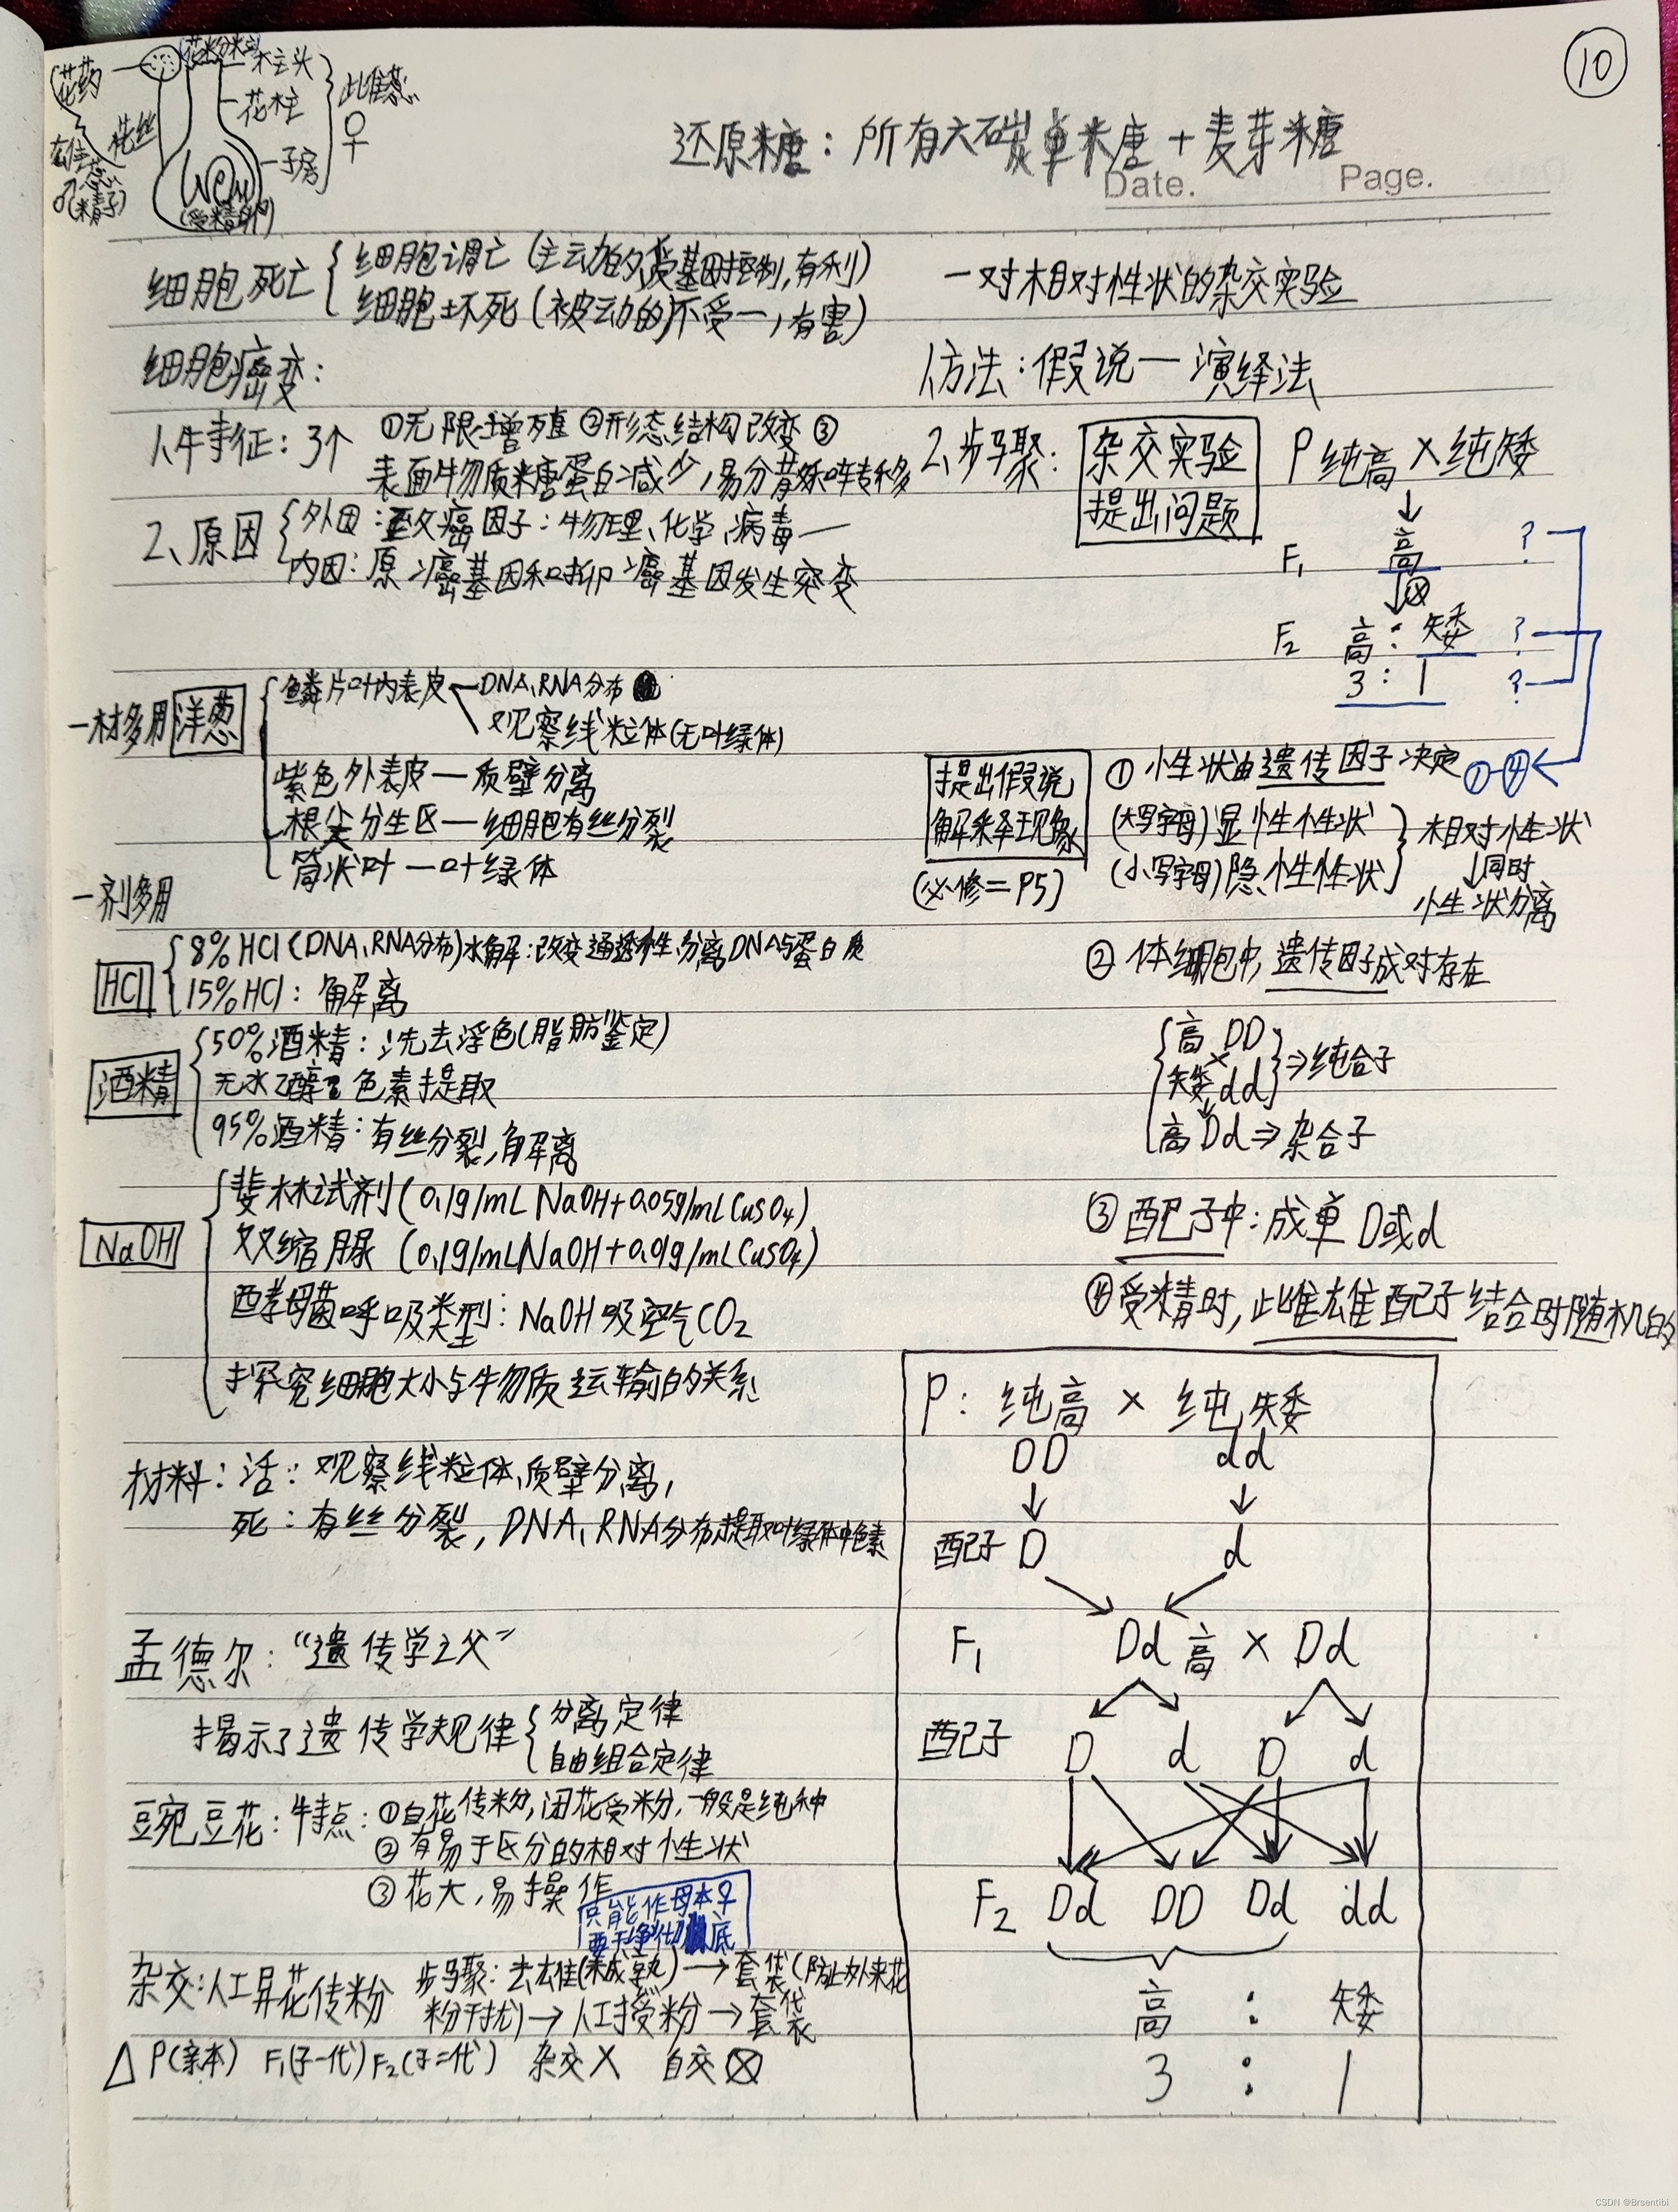 10
花药
花粉粒
柱头
花柱
子房
雌蕊
♀
花丝
雄蕊
♂(精子)
(受精卵)
还原糖：所有六碳单糖+麦芽糖
Date. Page.
细胞死亡
细胞凋亡(主动的,受基因控制,有利)
细胞坏死(被动的)不受一,有害)
细胞癌变：
1、特征：3个 ①无限增殖 ②形态结构改变 ③
表面物质糖蛋白减少,易分散转移
2、原因
外因：致癌因子：物理、化学、病毒一
内因：原癌基因和抑癌基因发生突变
一材多用 洋葱
鳞片叶内表皮
DNA、RNA分布
观察线粒体(无叶绿体)
紫色外表皮—质壁分离
根尖分生区—细胞有丝分裂
筒状叶—叶绿体
一剂多用
HCl
8%HCl(DNA、RNA分布)水解：改变通透性,分离DNA与蛋白质
15%HCl：解离
酒精
50%酒精：洗去浮色(脂肪鉴定)
无水乙醇：色素提取
95%酒精：有丝分裂,解离
NaOH
斐林试剂(0.1g/mL NaOH+0.05g/mL CuSO4)
双缩脲(0.1g/mLNaOH+0.01g/mLCuSO4)
酵母菌呼吸类型：NaOH吸空气CO2
探究细胞大小与物质运输的关系
材料：活：观察线粒体、质壁分离,
死：有丝分裂,DNA、RNA分布,提取叶绿体中色素
孟德尔：“遗传学之父”
揭示了遗传学规律
分离定律
自由组合定律
豆豌豆花：特点：①自花传粉,闭花受粉,一般是纯种
②有易于区分的相对性状
③花大,易操作
只能作母本♀
要干净彻底
杂交：人工异花传粉 步骤：去雄(未成熟)→套袋(防止外来花
粉干扰)→人工授粉→套袋
△ P(亲本) F1(子一代) F2(子二代) 杂交× 自交⊗
一对相对性状的杂交实验
1、方法：假说—演绎法
2、步骤：
杂交实验
提出问题
P 纯高×纯矮
↓
F1 高 ?
↓⊗
F2 高：矮 ?
3：1 ?
提出假说
解释现象
(必修二P5)
① 性状由遗传因子决定 ①-④
(大写字母)显性性状
(小写字母)隐性性状
相对性状
↓同时
性状分离
② 体细胞中,遗传因子成对存在
高 DD
×
矮 dd
⇒纯合子
高 Dd⇒杂合子
③ 配子中：成单 D或d
④ 受精时,雌雄配子结合时随机的
P：纯高 × 纯矮
DD dd
↓ ↓
配子 D d
F1 Dd 高 × Dd
配子 D d D d
F2 Dd DD Dd dd
高 ： 矮
3 ： 1
CSDN @Brsentibi